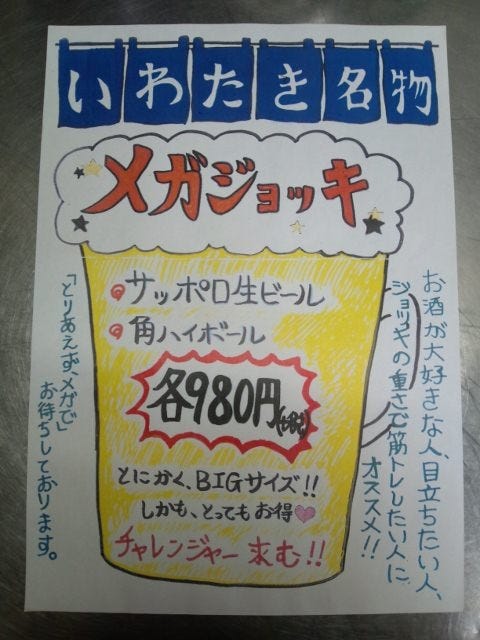 いわたき名物
メガジョッキ
サッポロ生ビール
角ハイボール
各980円
とにかく、BIGサイズ!!
しかも、とってもお得
チャレンジャー求む!!
お酒が大好きな人、目立ちたい人、
ジョッキの重さで筋トレしたい人に、
オススメ!!
「とりあえずメガで」
お待ちしております。